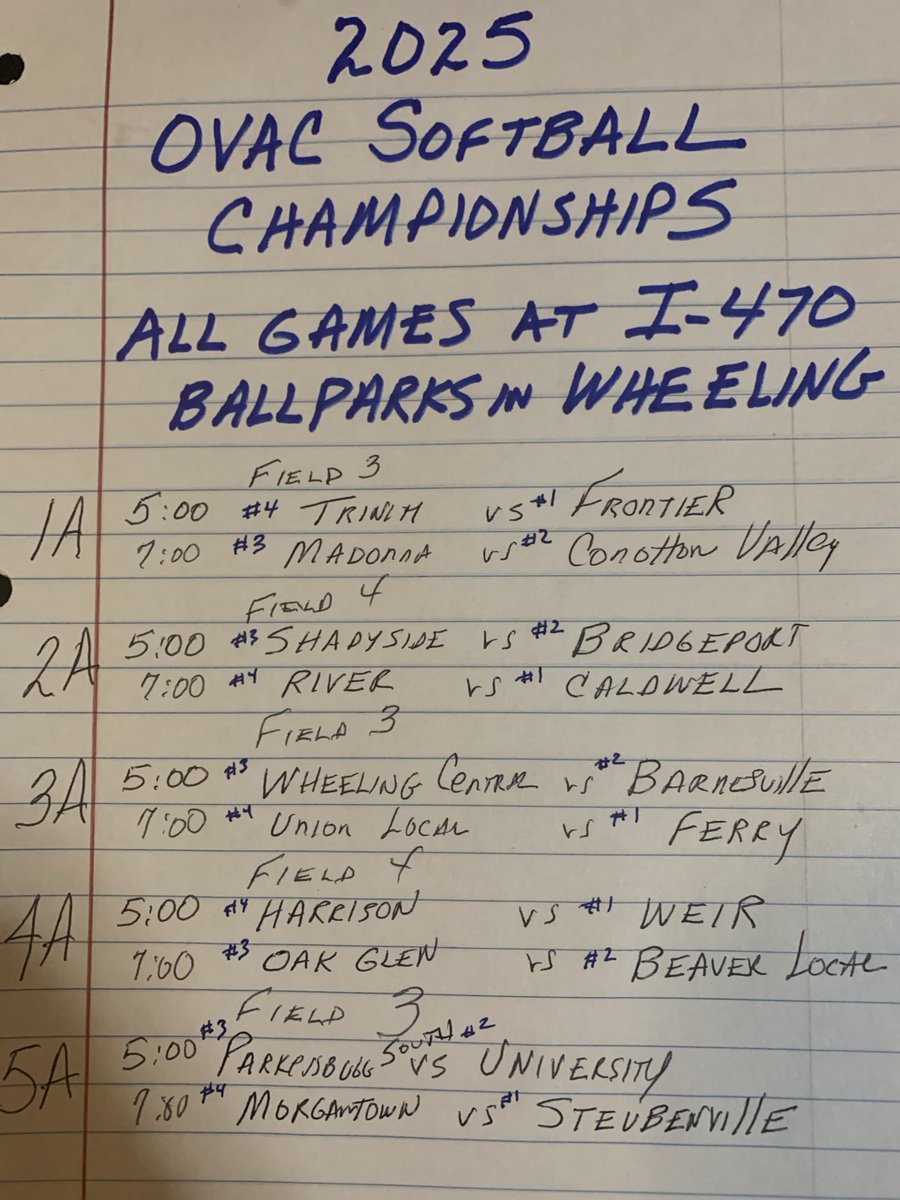 2025
OVAC SOFTBALL
CHAMPIONSHIPS
ALL GAMES AT I-470
BALLPARKS IN WHEELING
FIELD 3
1A 5:00 #4 TRINITY vs #1 FRONTIER
7:00 #3 MADONNA vs #2 CONOTTON VALLEY
FIELD 4
2A 5:00 #3 SHADYSIDE vs #2 BRIDGEPORT
7:00 #4 RIVER vs #1 CALDWELL
FIELD 3
3A 5:00 #3 WHEELING CENTRAL vs #2 BARNESVILLE
7:00 #4 UNION LOCAL vs #1 FERRY
FIELD 4
4A 5:00 #4 HARRISON vs #1 WEIR
7:00 #3 OAK GLEN vs #2 BEAVER LOCAL
FIELD 3
5A 5:00 #3 PARKERSBURG SOUTH vs #2 UNIVERSITY
7:00 #4 MORGANTOWN vs #1 STEUBENVILLE